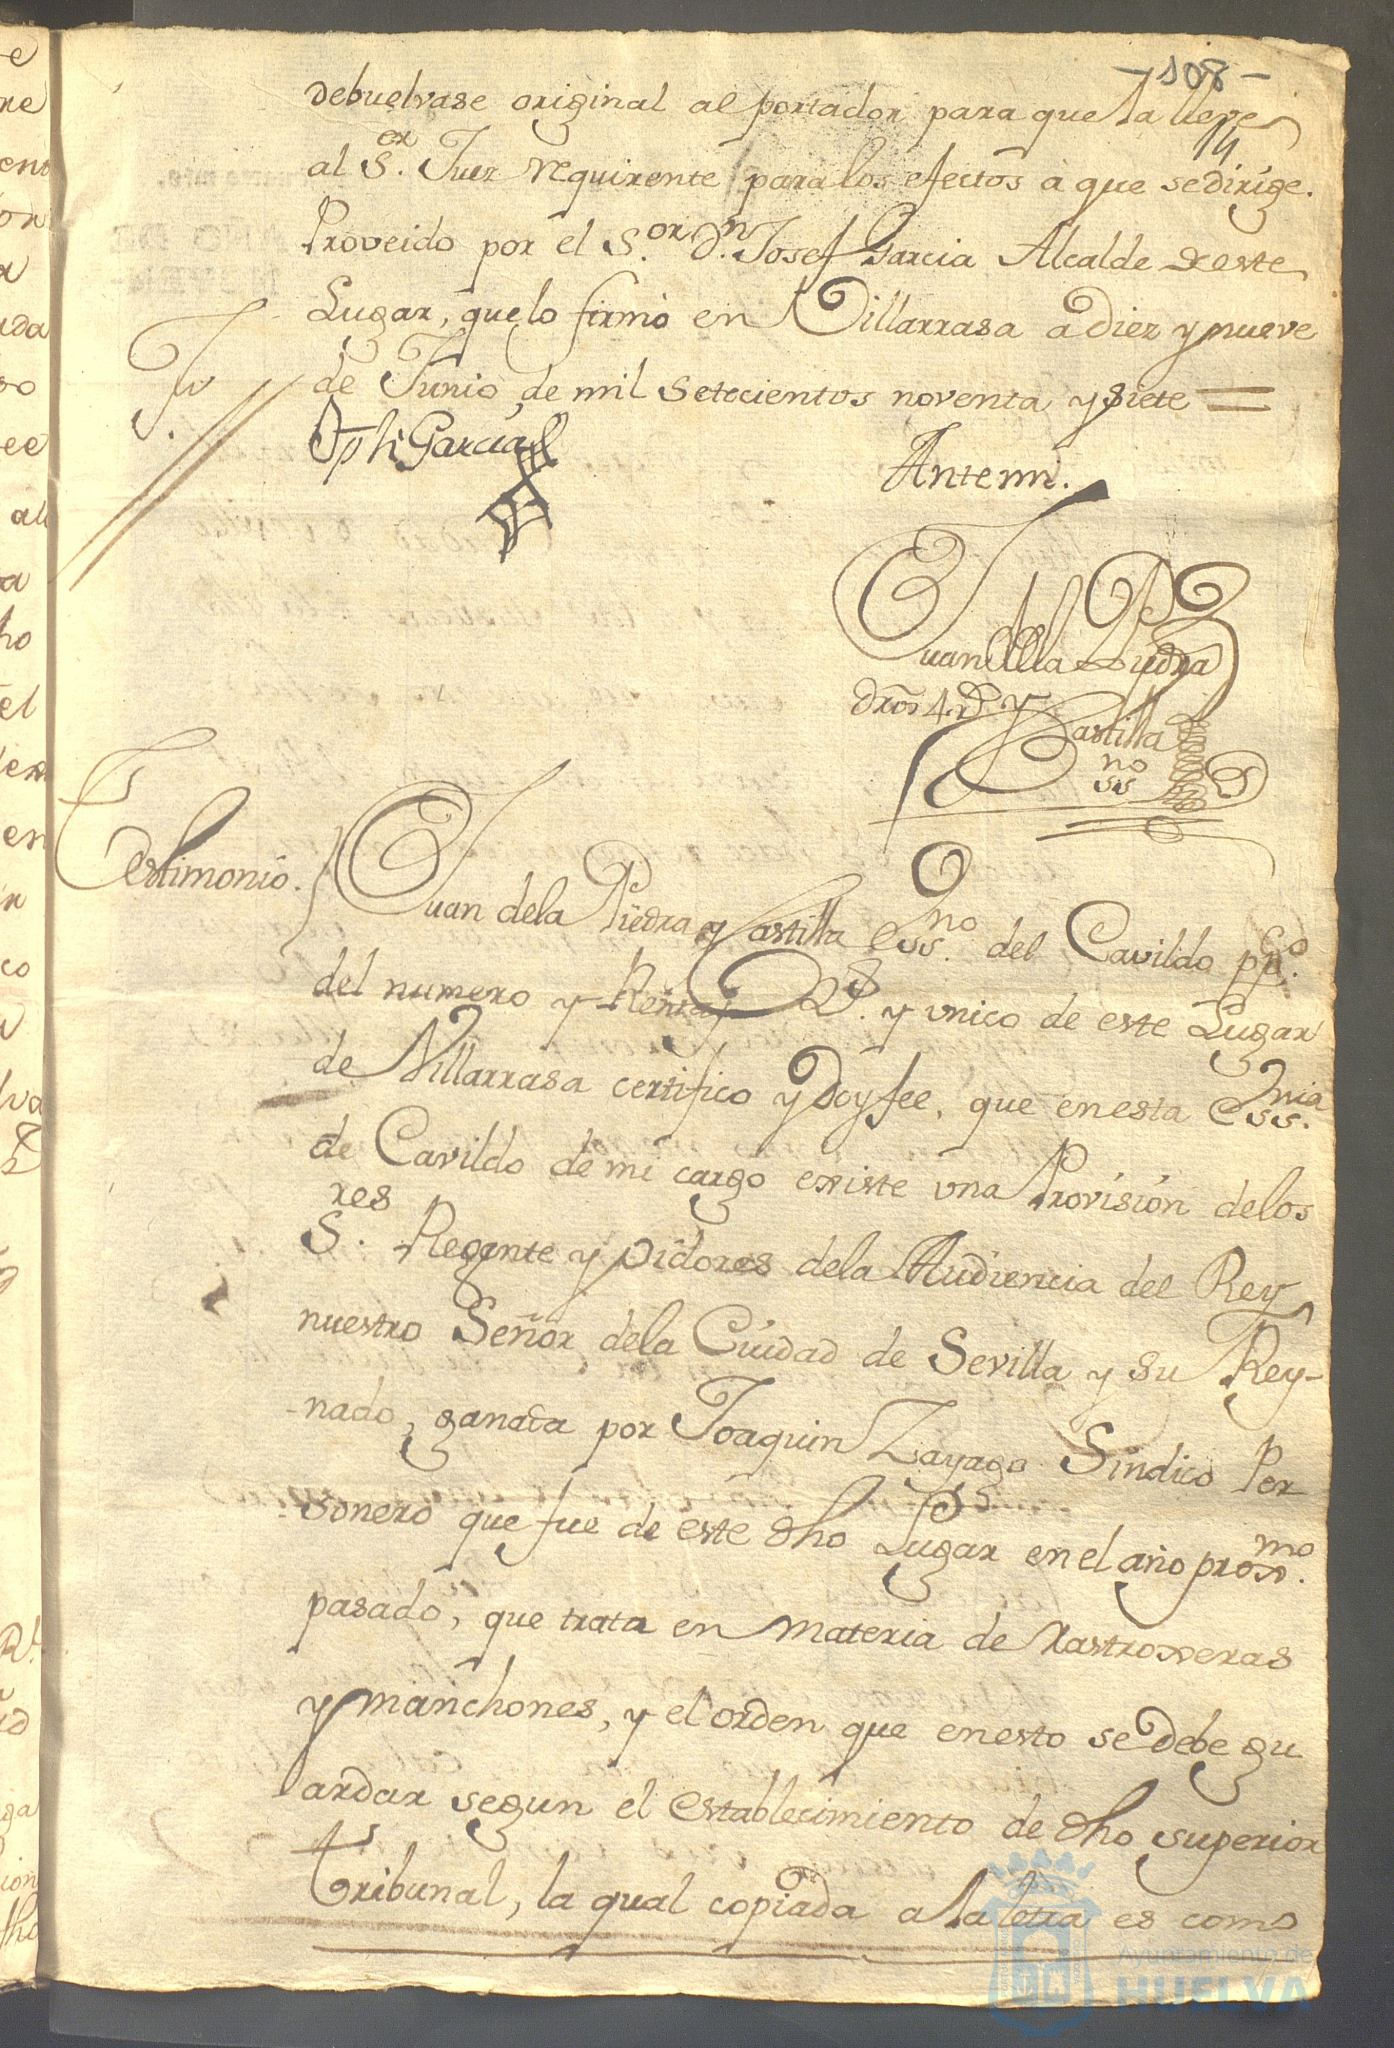 -108-
debuelvase original al portador para que la lleve
14
al S.or Juez requirente para los efectos à que se dirige.
Proveido por el S.or D.n Josef Garcia Alcalde de este
Lugar, que lo firmó en Villarrasa a diez y nueve
de Junio, de mil setecientos noventa y siete =
Jph Garcia
Ante mi.
Juan de la Piedra
y
Castilla
ss no
Testimonio.
Juan de la Piedra y Castilla Ess.no del Cavildo pp.co
del numero y Rentas R.s y unico de este Lugar
de Villarrasa certifico y Doy fee, que en esta Ess.nia
de Cavildo de mi cargo existe una Provision de los
S.res Regente y oidores de la Audiencia del Rey
nuestro Señor de la Ciudad de Sevilla y su Rey-
-nado, ganada por Joaquin Zayago Sindico Per
sonero que fue de este dho Lugar en el año prox.mo
pasado, que trata en materia de Rastroxeras
y manchones, y el orden que en esto se debe gu
ardar segun el establecimiento de dho superior
tribunal, la qual copiada a la letra es como
Ayuntamiento de
HUELVA